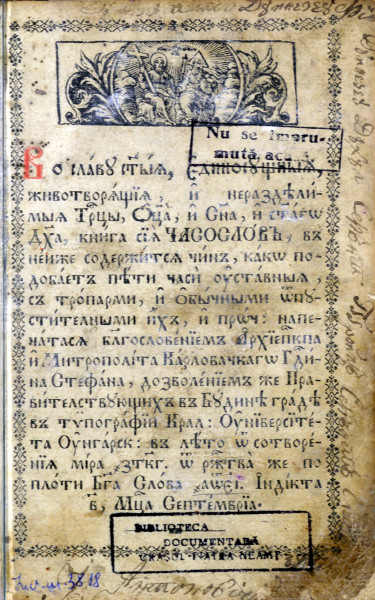 Nu se împru-
mută
Во славу ст҃ыѧ, є҆диносꙋщныѧ,
животворѧщїѧ, и҆ нераздѣли-
мыѧ Трⷪ҇цы, Ѻ҆ц҃а, и҆ Сн҃а, и҆ ст҃агѡ
Дх҃а, книга сїѧ ЧАСОСЛОВЪ, въ
нейже содержитсѧ чинъ, какѡ по-
добаетъ пѣти часы ᲂу҆ставныѧ,
съ тропарми, и҆ ѻ҆бычными ѿпꙋ-
стителными и҆хъ, и҆ прѡч: напе-
чатасѧ бл҃гословенїемъ Архїепⷭ҇кпа
и҆ Митрополїта Карловачкагѡ Гдⷭ҇и-
на Стефана, дозволенїемъ же Пра-
вителствꙋющихъ въ Бꙋдинѣ градѣ
въ тѷпографїи Крал: Оунїверсїте-
та Оунгарск: въ лѣто ѿ сотворе-
нїѧ міра ҂зткг. ѿ рж҃тва же по
плоти Бг҃а Слова ҂аѡєі. Індікта
в҃, Мц҃а Септемврїа.
BIBLIOTECA
DOCUMENTARĂ
ORAȘUL PIATRA NEAMȚ